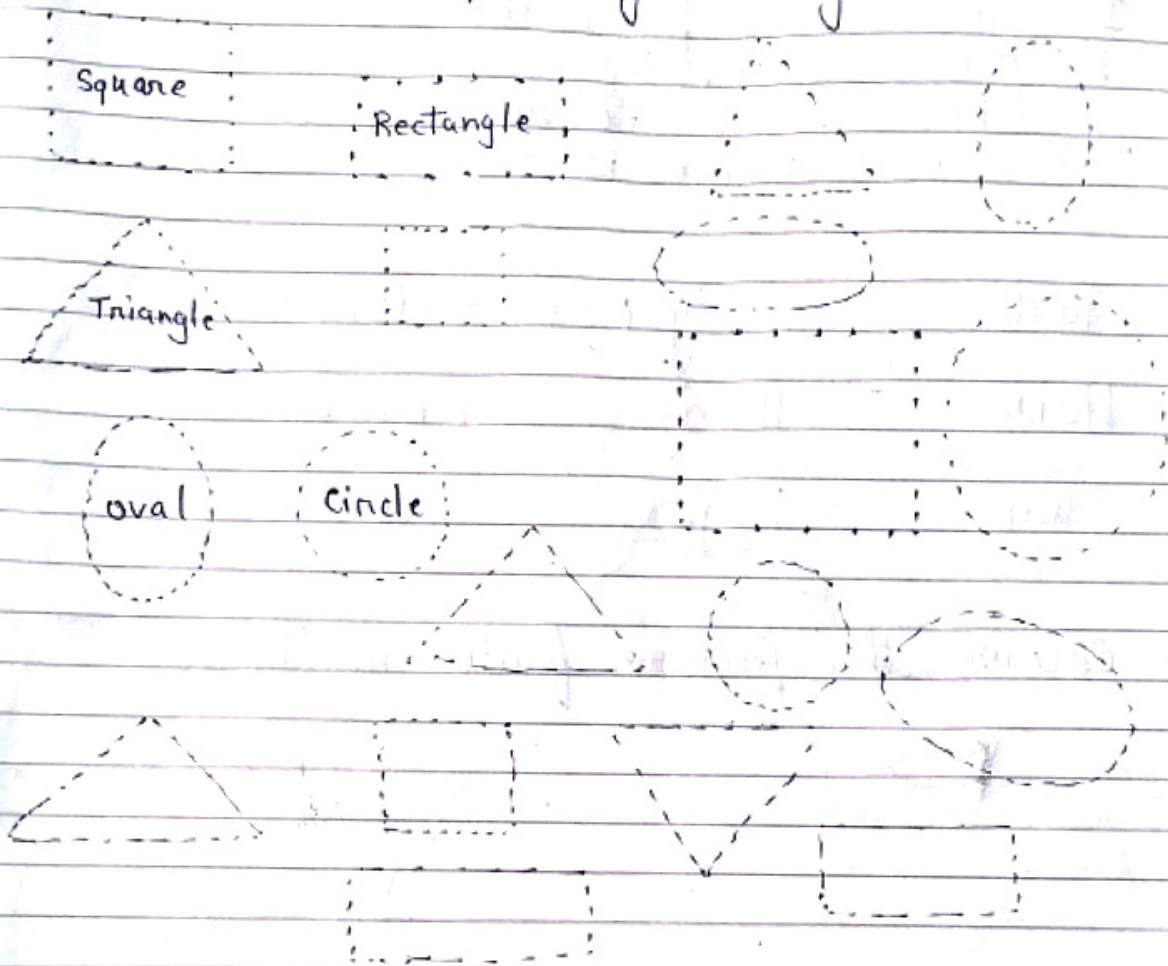 Square
Rectangle
Triangle
oval
Circle